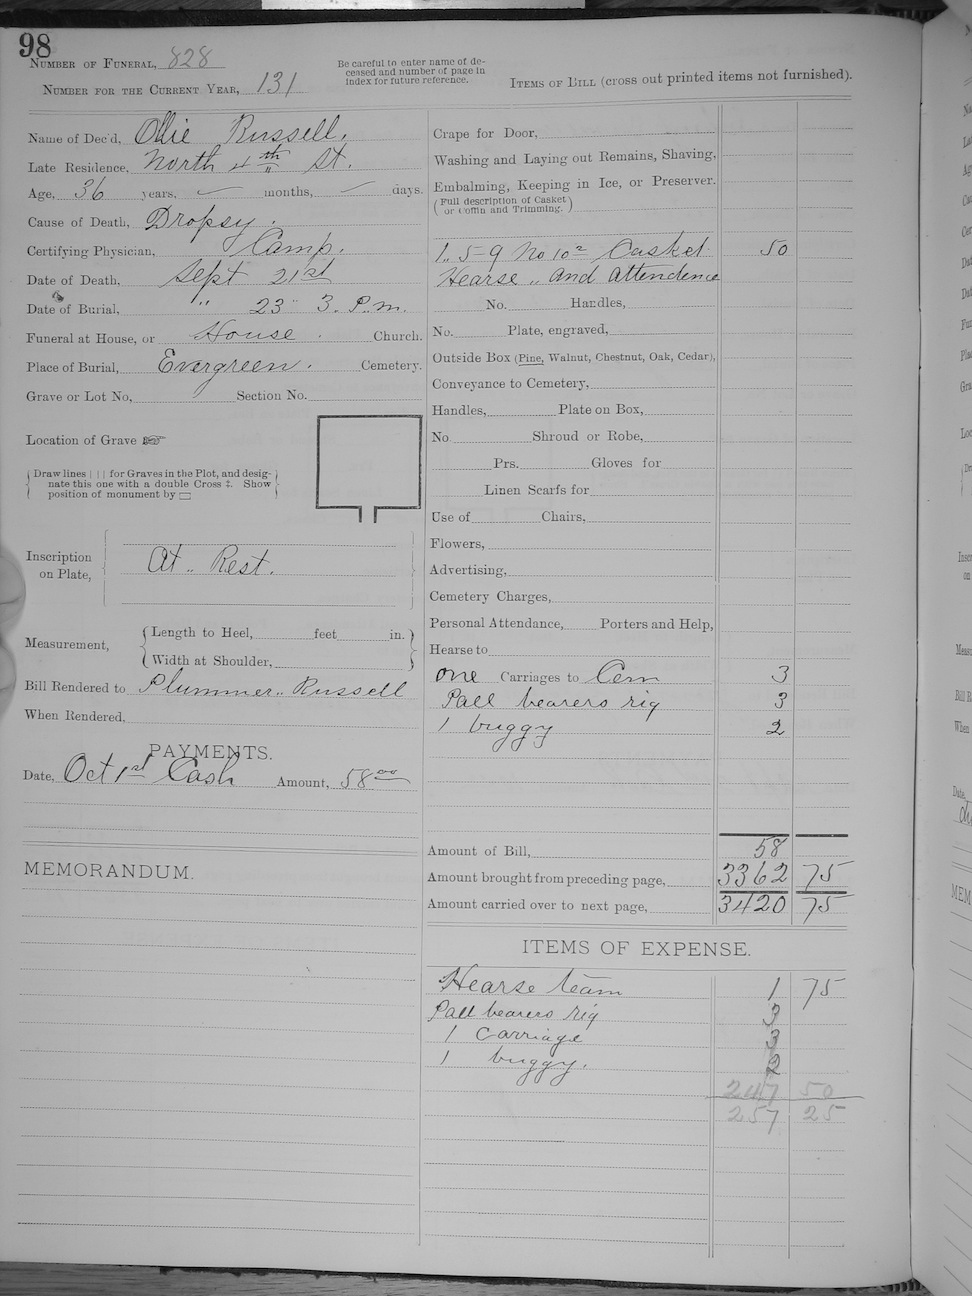 98
NUMBER OF FUNERAL, 828
NUMBER FOR THE CURRENT YEAR, 131
Be careful to enter name of de-
ceased and number of page in
index for future reference.
ITEMS OF BILL (cross out printed items not furnished).
Name of Dec'd, Ollie Russell.
Late Residence, North 4th St.
Age, 36 years, months, days.
Cause of Death, Dropsy.
Certifying Physician, Camp.
Date of Death, Sept 21st
Date of Burial, " 23" 3. P.m.
Funeral at House, or House. Church.
Place of Burial, Evergreen. Cemetery.
Grave or Lot No, Section No.
Location of Grave ☞
Draw lines | | | for Graves in the Plot, and desig-
nate this one with a double Cross ‡. Show
position of monument by ▭
Inscription
on Plate,
At.. Rest.
Measurement,
Length to Heel, feet in.
Width at Shoulder,
Bill Rendered to Plummer.. Russell
When Rendered,
PAYMENTS.
Date, Oct 1st Cash Amount, 58 00
MEMORANDUM.
Crape for Door,
Washing and Laying out Remains, Shaving,
Embalming, Keeping in Ice, or Preserver.
(Full description of Casket
or Coffin and Trimming.)
1.. 5-9 No 10 2 Casket 50
Hearse.. and attendence
No. Handles,
No. Plate, engraved,
Outside Box (Pine, Walnut, Chestnut, Oak, Cedar),
Conveyance to Cemetery,
Handles, Plate on Box,
No. Shroud or Robe,
Prs. Gloves for
Linen Scarfs for
Use of Chairs,
Flowers,
Advertising,
Cemetery Charges,
Personal Attendance, Porters and Help,
Hearse to
one Carriages to Cem 3
Pall bearers rig 3
1 buggy 2
Amount of Bill, 58
Amount brought from preceding page, 3362 75
Amount carried over to next page, 3420 75
ITEMS OF EXPENSE.
Hearse team 1 75
Pall bearers rig 3
1 Carriage 3
1 buggy. 2
247 50
257 25